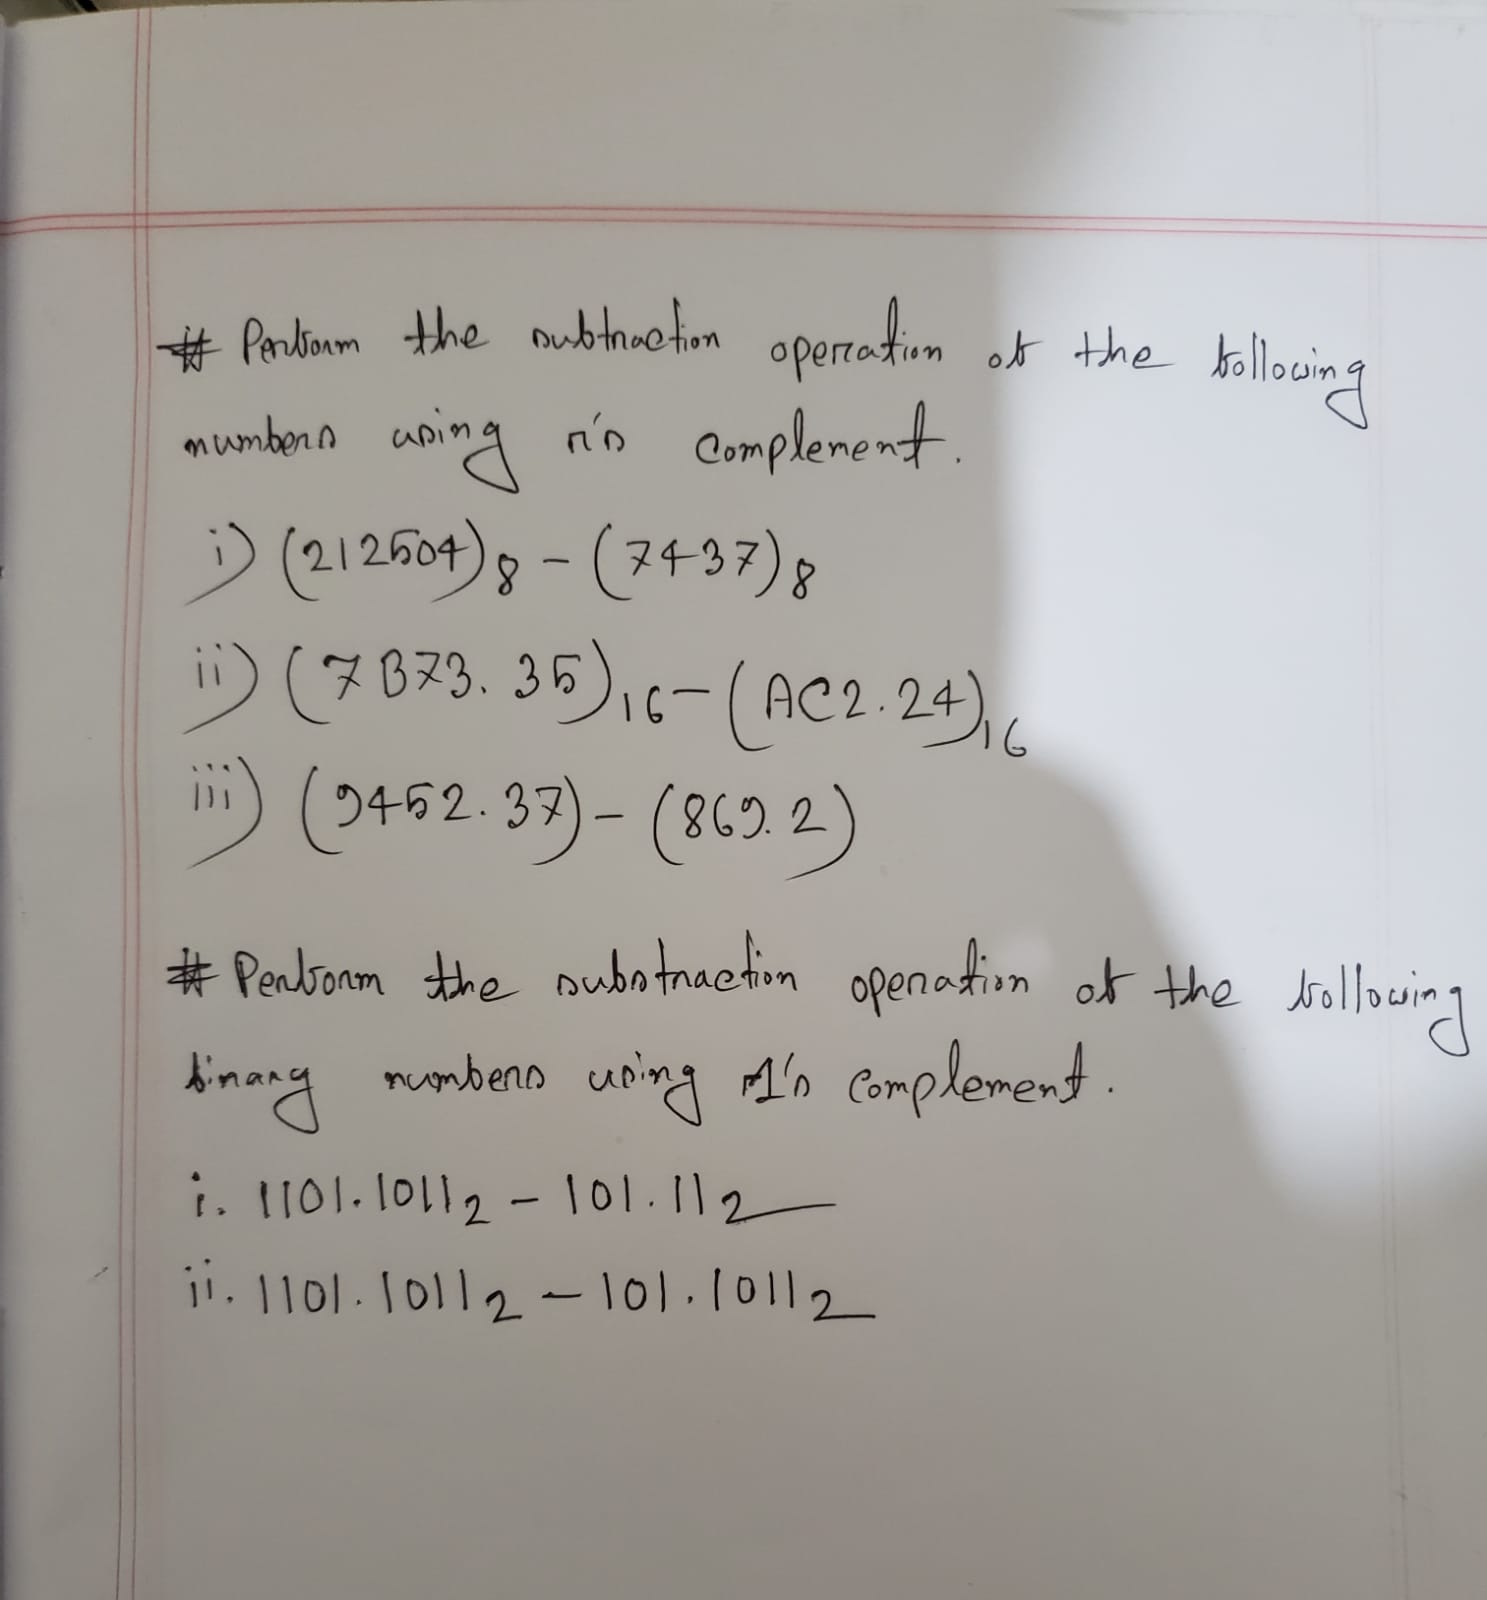 # Perform the subtraction operation of the following
numbers using r's complement.
i) (212504)8 - (7437)8
ii) (7B73.35)16 - (AC2.24)16
iii) (9452.37) - (869.2)
# Perform the substraction operation of the following
binary numbers using 1's complement.
i. 1101.10112 - 101.112
ii. 1101.10112 - 101.10112